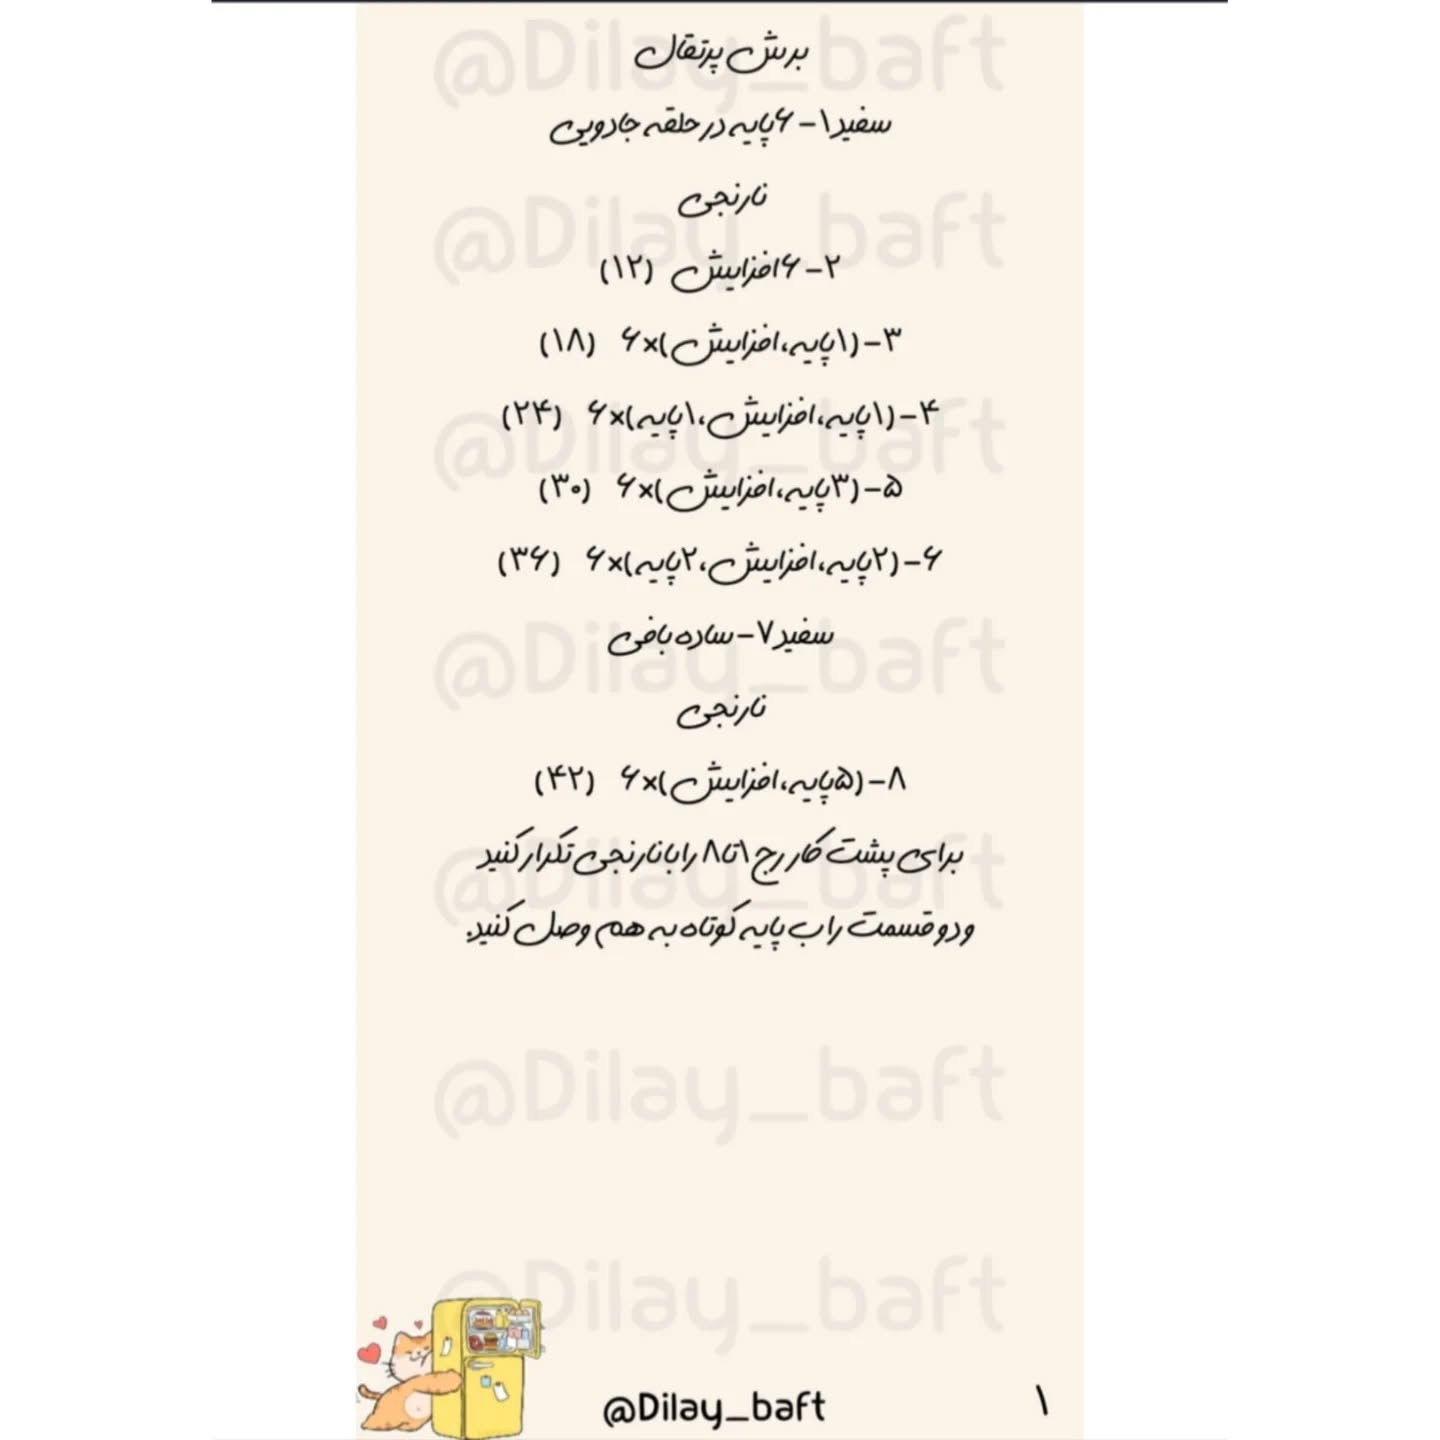 برش پرتقال
سفید۱- ۶پایه در حلقه جادویی
نارنجی
۲- ۶افزایش (۱۲)
۳-(۱پایه،افزایش)×۶ (۱۸)
۴-(۱پایه،افزایش،۱پایه)×۶ (۲۴)
۵-(۳پایه،افزایش)×۶ (۳۰)
۶-(۲پایه،افزایش،۲پایه)×۶ (۳۶)
سفید۷-ساده بافی
نارنجی
۸-(۵پایه،افزایش)×۶ (۴۲)
برای پشت کار رج ۱تا۸ را با نارنجی تکرار کنید
و دو قسمت را ب پایه کوتاه به هم وصل کنید.
@Dilay_baft
@Dilay_baft
@Dilay_baft
@Dilay_baft
@Dilay_baft
@Dilay_baft
@Dilay_baft
@Dilay_baft
۱